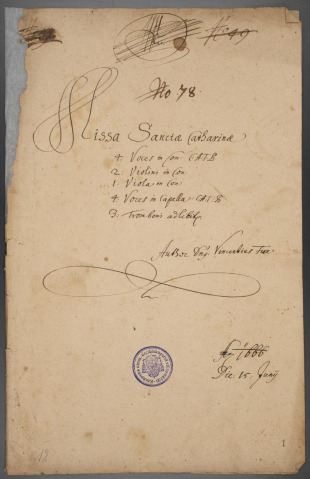 No 49
No 78.
Missa Sanctæ Catharinæ
4. Voces in Con: C.A.T.B
2. Violini in Con:
1. Viola in Con:
4. Voces in Capella C.A.T.B
3. Tromboni ad libit:
Author Dn͂g Vincentius
A͂o 1666
Die 15. Junij
1
12